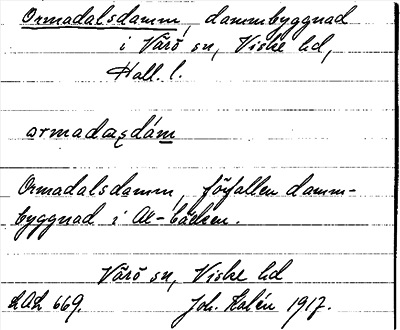 Ormadalsdamm, dammbyggnad
i Värö sn, Viske hd,
Hall. l.
ormadaʂdám
Ormadalsdamm, förfallen damm-
byggnad i Ae-bäcken.
Värö sn, Viske hd
669. Joh. Kalén 1917.